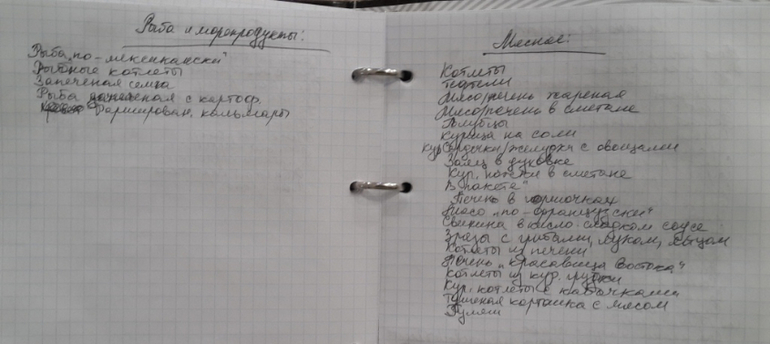 Рыба и морепродукты:
Рыба „по-мексикански"
Рыбные котлеты
Запеченая семга
Рыба запеченая с картоф.
Фарширован. кальмары
Мясное:
Котлеты
Тефтели
Мясо/печень жареная
Мясо/печень в сметане
Голубцы
Курица на соли
Кур. сердечки/желудки с овощами
Заяц в духовке
Кур. ножки в сметане
В пакете"
Печень в горшочках
Мясо „по-французски"
Свинина в кисло-сладком соусе
Зразы с грибами, луком, яйцом
Котлеты из печени
Печень „красавица Востока"
Котлеты из кур. грудки
Кур. котлеты с кабачками
Тушеная картошка с мясом
Гуляш